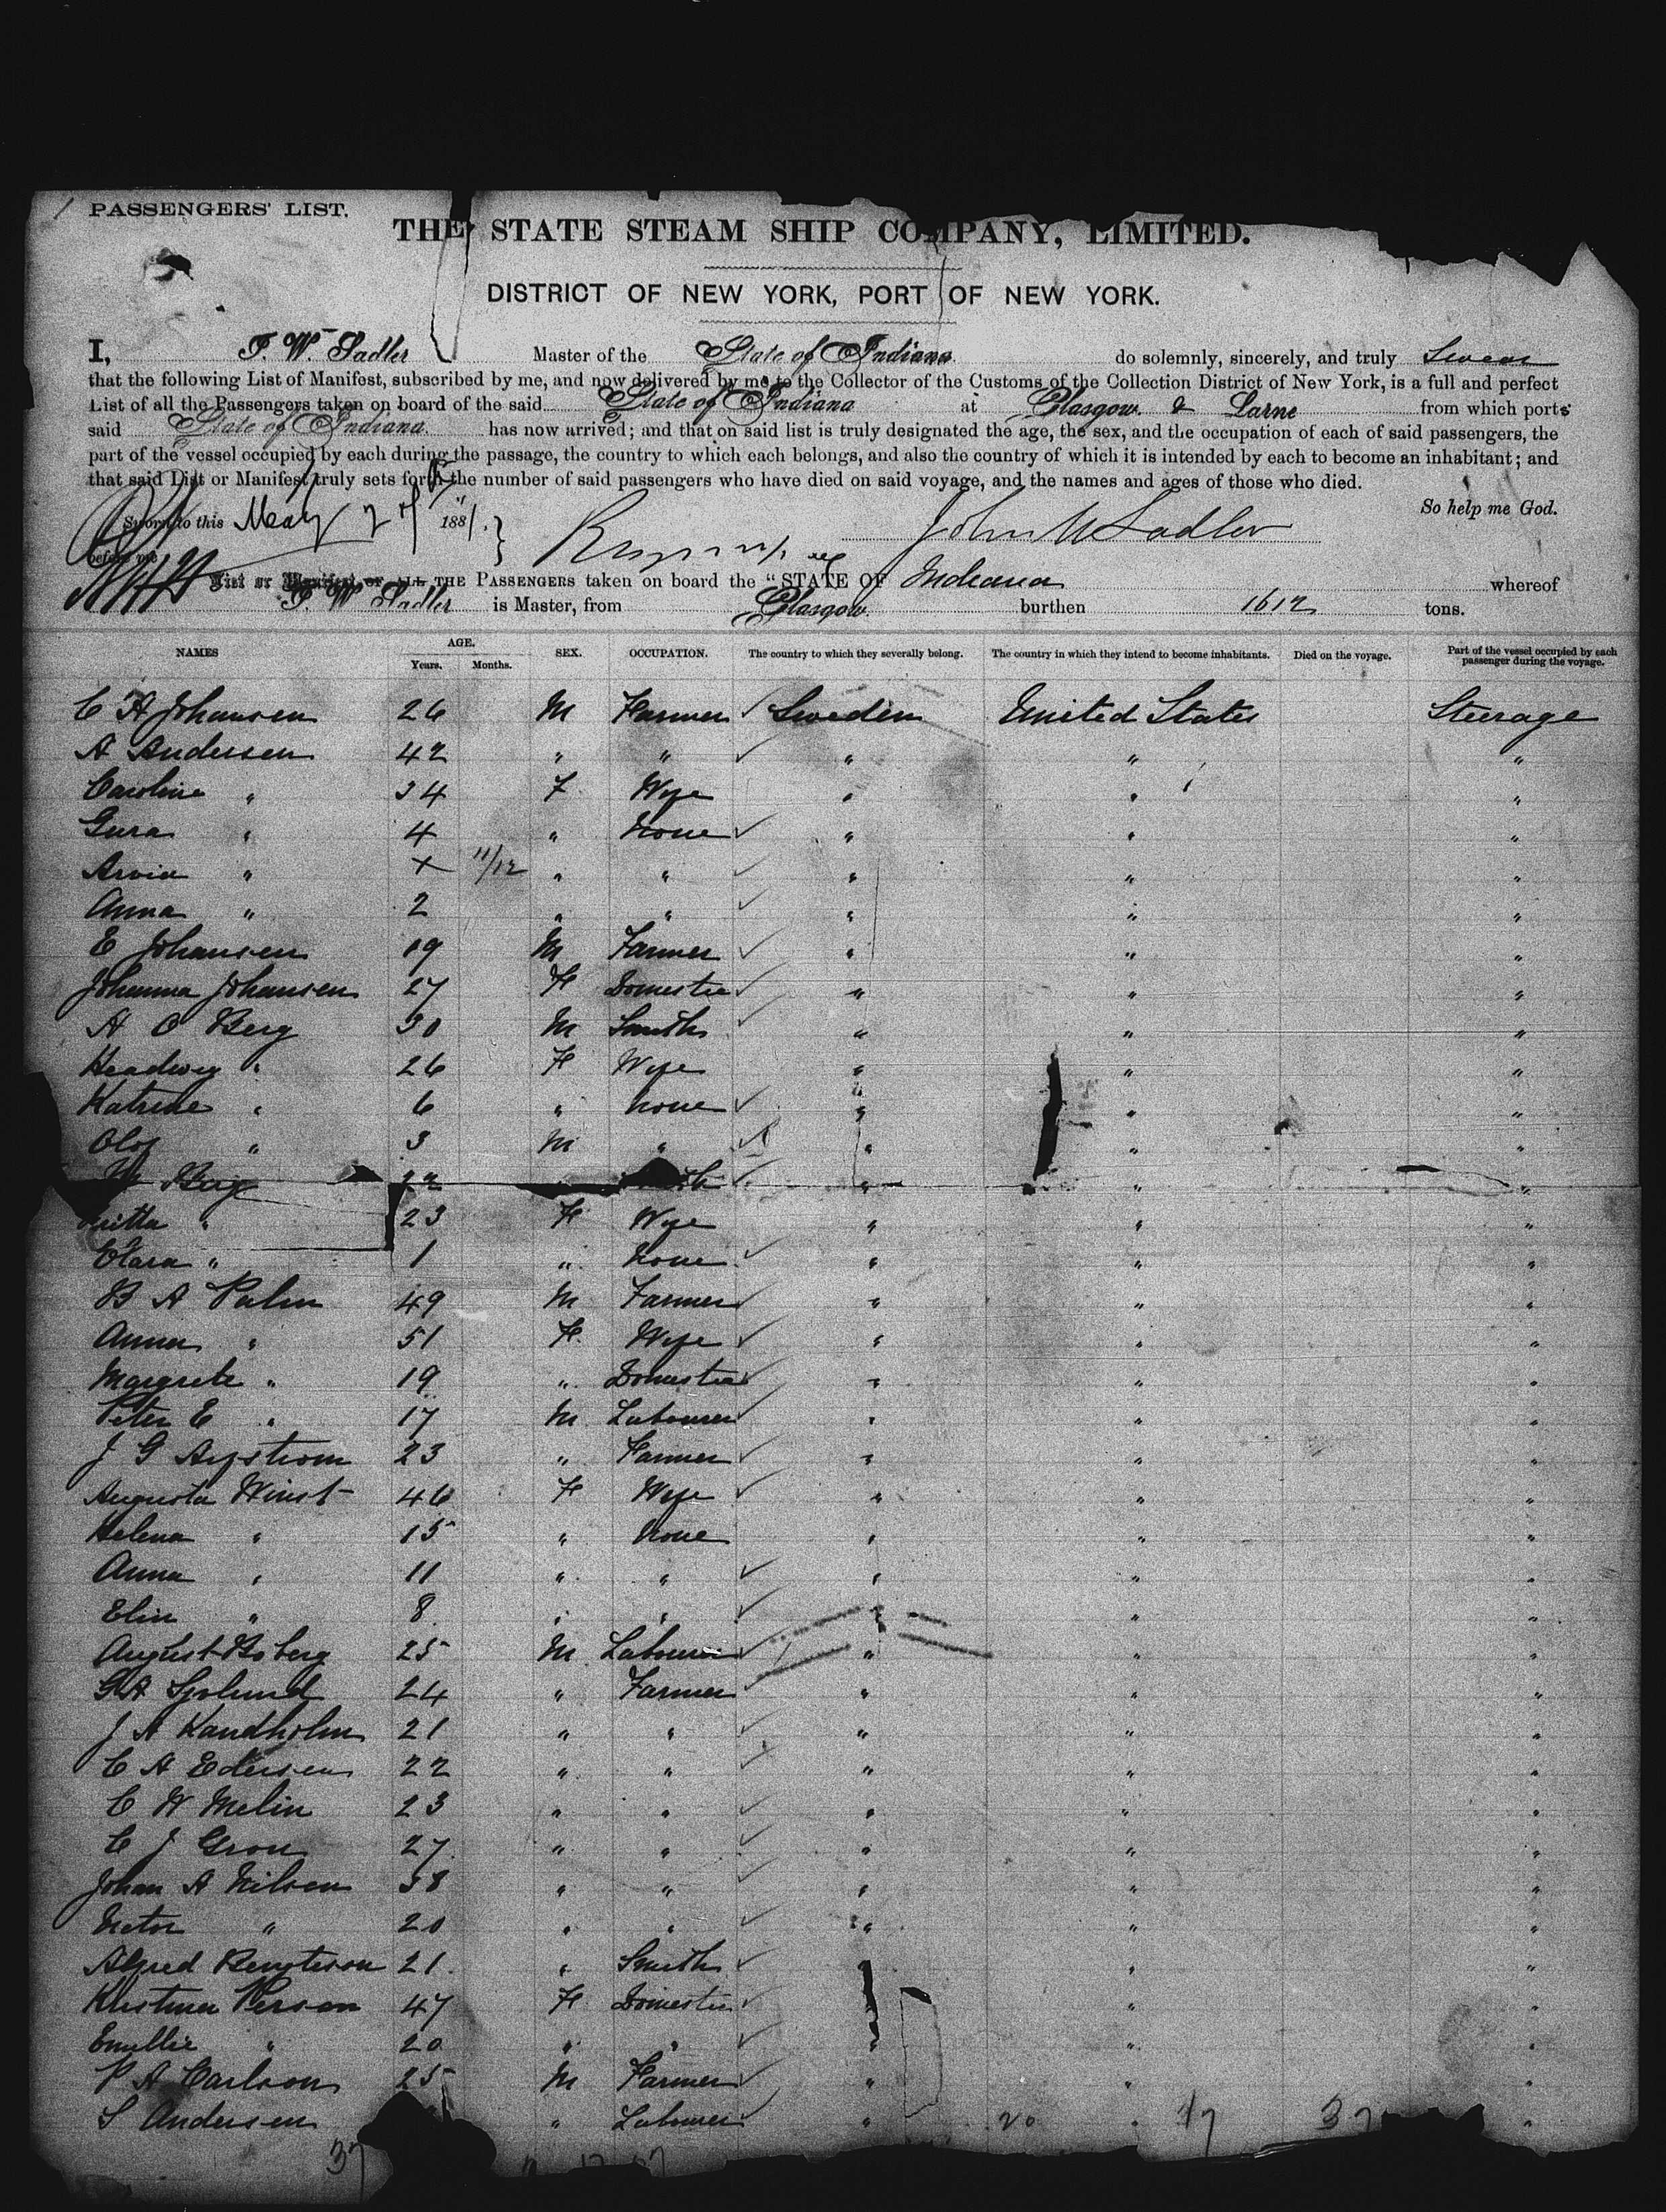 1 PASSENGERS' LIST.
THE STATE STEAM SHIP COMPANY, LIMITED.
DISTRICT OF NEW YORK, PORT OF NEW YORK.
I, J. W. Sadler Master of the State of Indiana do solemnly, sincerely, and truly Swear
that the following List of Manifest, subscribed by me, and now delivered by me to the Collector of the Customs of the Collection District of New York, is a full and perfect
List of all the Passengers taken on board of the said State of Indiana at Glasgow & Larne from which ports
said State of Indiana has now arrived; and that on said list is truly designated the age, the sex, and the occupation of each of said passengers, the
part of the vessel occupied by each during the passage, the country to which each belongs, and also the country of which it is intended by each to become an inhabitant; and
that said List or Manifest truly sets forth the number of said passengers who have died on said voyage, and the names and ages of those who died.
So help me God.
Sworn to this May 27 1881. John W Sadler
before me
List or Manifest OF ALL THE PASSENGERS taken on board the "STATE OF Indiana whereof
J. W Sadler is Master, from Glasgow burthen 1612 tons.
NAMES AGE. Years. Months. SEX. OCCUPATION. The country to which they severally belong. The country in which they intend to become inhabitants. Died on the voyage. Part of the vessel occupied by each passenger during the voyage.
C A Johansen 26 M Farmer Sweden United States Steerage
A Andersen 42 " " " " "
Caroline " 34 F Wife " " "
Gura " 4 " None " " "
Arvia " + 11/12 " " " " "
Anna " 2 " " " " "
E Johansen 19 M Farmer " " "
Johanna Johansen 27 F Domestic " " "
A O Berg 30 M Smith " " "
Headwig " 26 F Wife " " "
Katrine " 6 " None " " "
Olof " 3 M " " " "
Berg 22 " " "
" 23 F Wife " " "
Clara " 1 " None " " "
B A Palm 49 M Farmer " " "
Anna " 51 F Wife " " "
Margrete " 19 " Domestic " " "
Peter E " 17 M Labourer " " "
J G 23 " Farmer " " "
Augusta Winst 46 F Wife " " "
Helena " 15 " None " " "
Anna " 11 " " " " "
Elin " 8 " " " " "
August Boberg 25 M Labourer " " "
G A Sjolund 24 " Farmer " " "
J A Kandholm 21 " " " " "
C A Edersen 22 " " " " "
C W Melin 23 " " " " "
C J Gron 27 " " " " "
Johan A Nilsen 38 " " " " "
" 20 " " " " "
Alfred Bengtsson 21 " Smith " " "
Kristina Person 47 F Domestic " " "
Emillie " 20 " " " " "
P A Carlson 25 M Farmer " " "
S Andersen " Labourer " 20 " 17 37 "
37